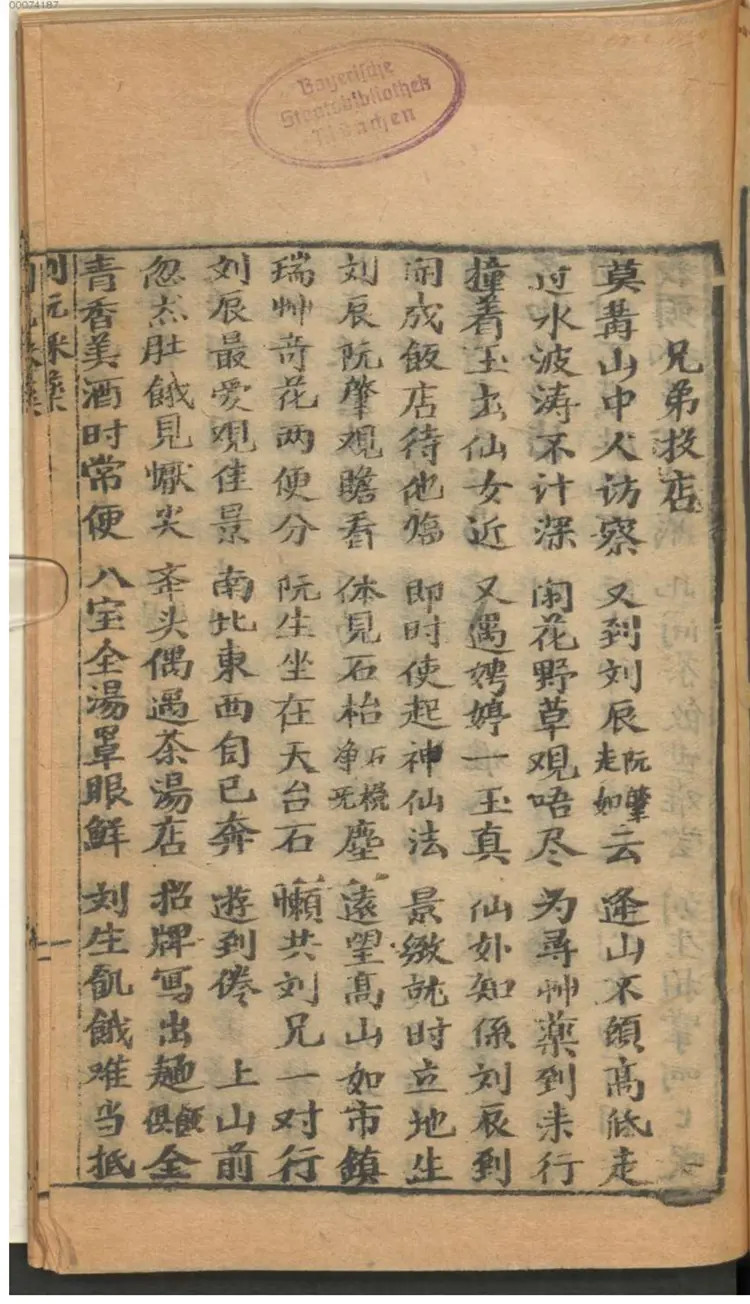 00074187
Bayerische
Staatsbibliothek
München
兄弟投店
莫講山中人访察 又到刘辰阮肇走如云 逢山不顧高低走
过水波涛不计深 闲花野草观唔尽 为尋艸薬到来行
撞着玉出仙女近 又遇娉婷一玉真 仙姑知係刘辰到
闹成飯店待他臨 即时使起神仙法 景緻就时立地生
刘辰阮肇观瞻看 体見石枱石櫈净死塵 遠望高山如市鎮
瑞艸奇花两便分 阮生坐在天台石 懒共刘兄一对行
刘辰最爱观佳景 南北東西自已奔 遊到倦 上山前
忽然肚餓見懨尖 奔头偶遇茶湯店 招牌寫出麺飯俱全
青香美酒时常便 八宝全湯罩眼鮮 刘生飢餓难当抵
刘阮采藥